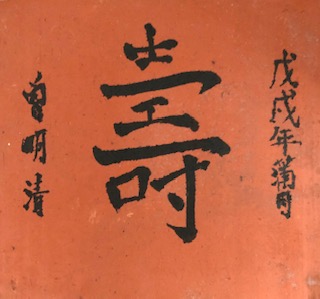 戊戌年蒲月
壽
曾明清